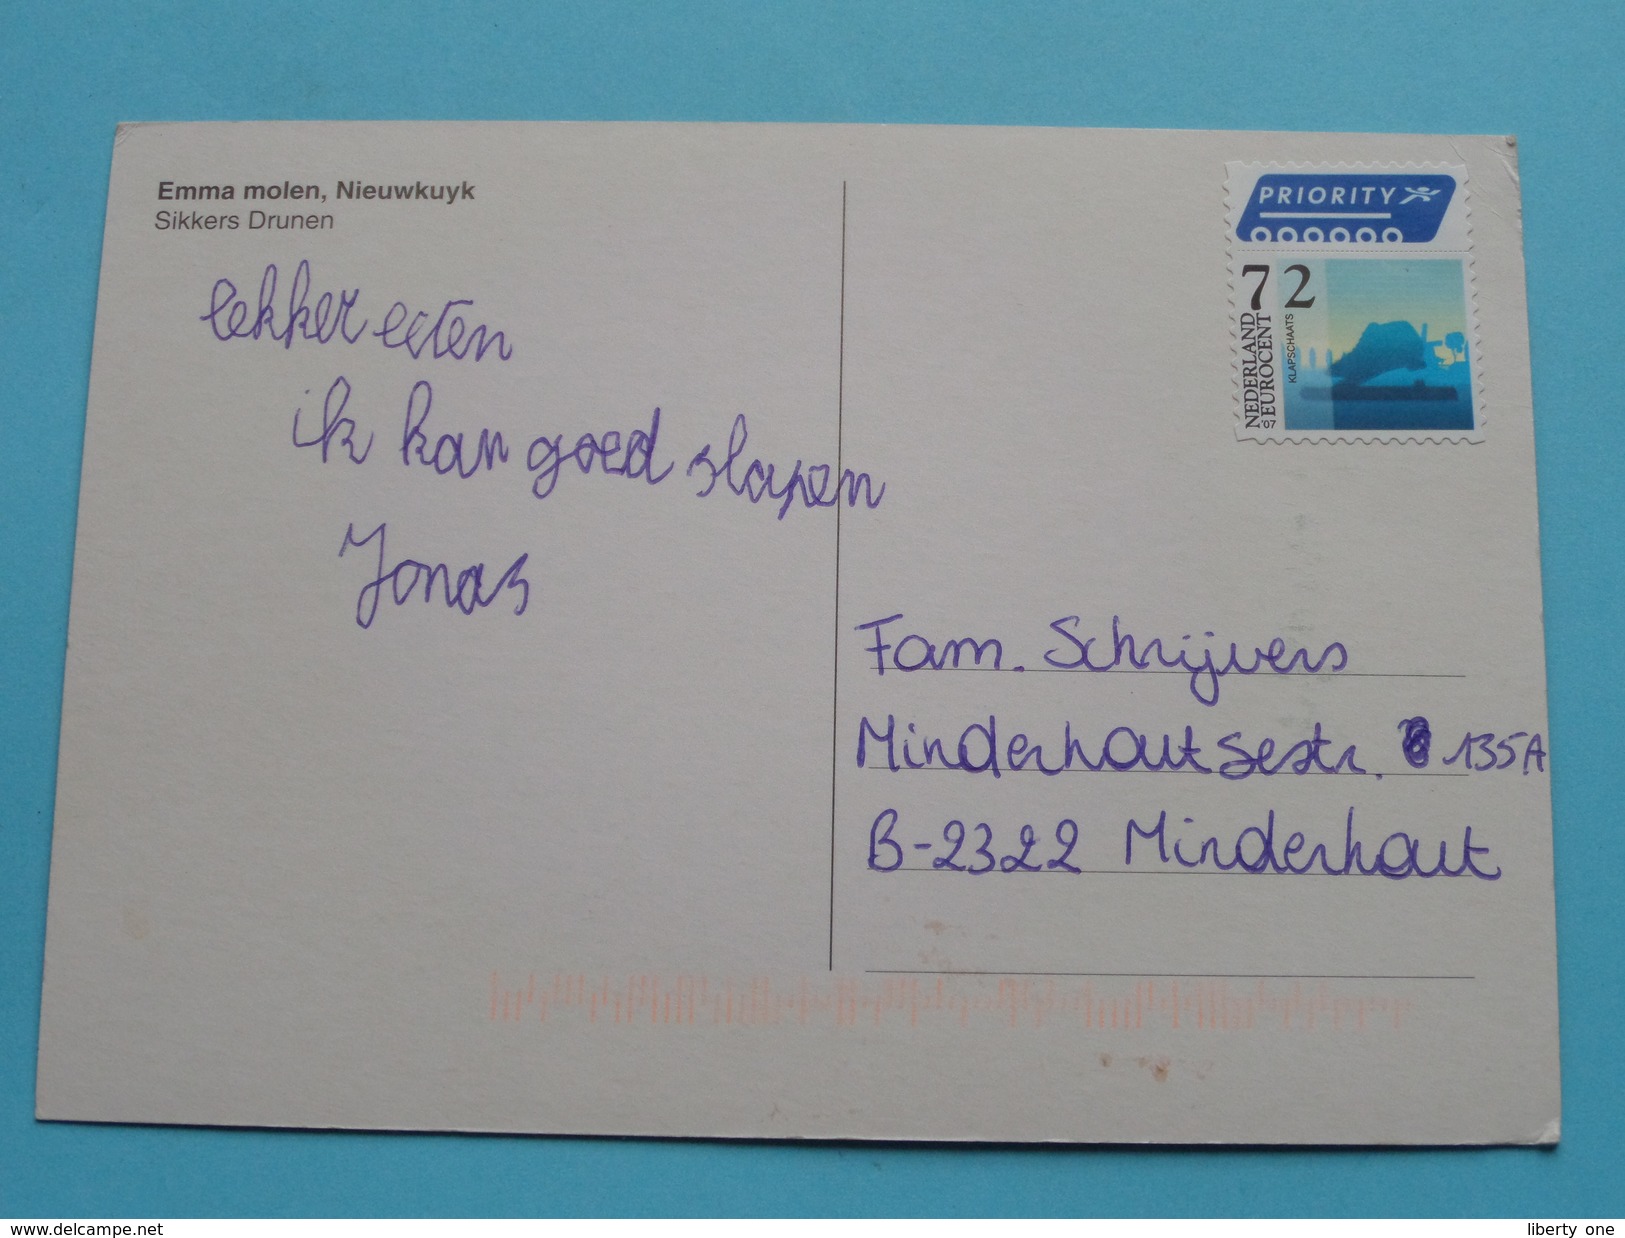 Emma molen, Nieuwkuyk
Sikkers Drunen
lekker eeten
ik kan goed slapen
Jonas
PRIORITY
72
NEDERLAND
'07 EUROCENT
KLAPSCHAATS
Fam. Schrijvers
Minderhoutsestr. 135A
B-2322 Minderhout
www.delcampe.net
liberty one